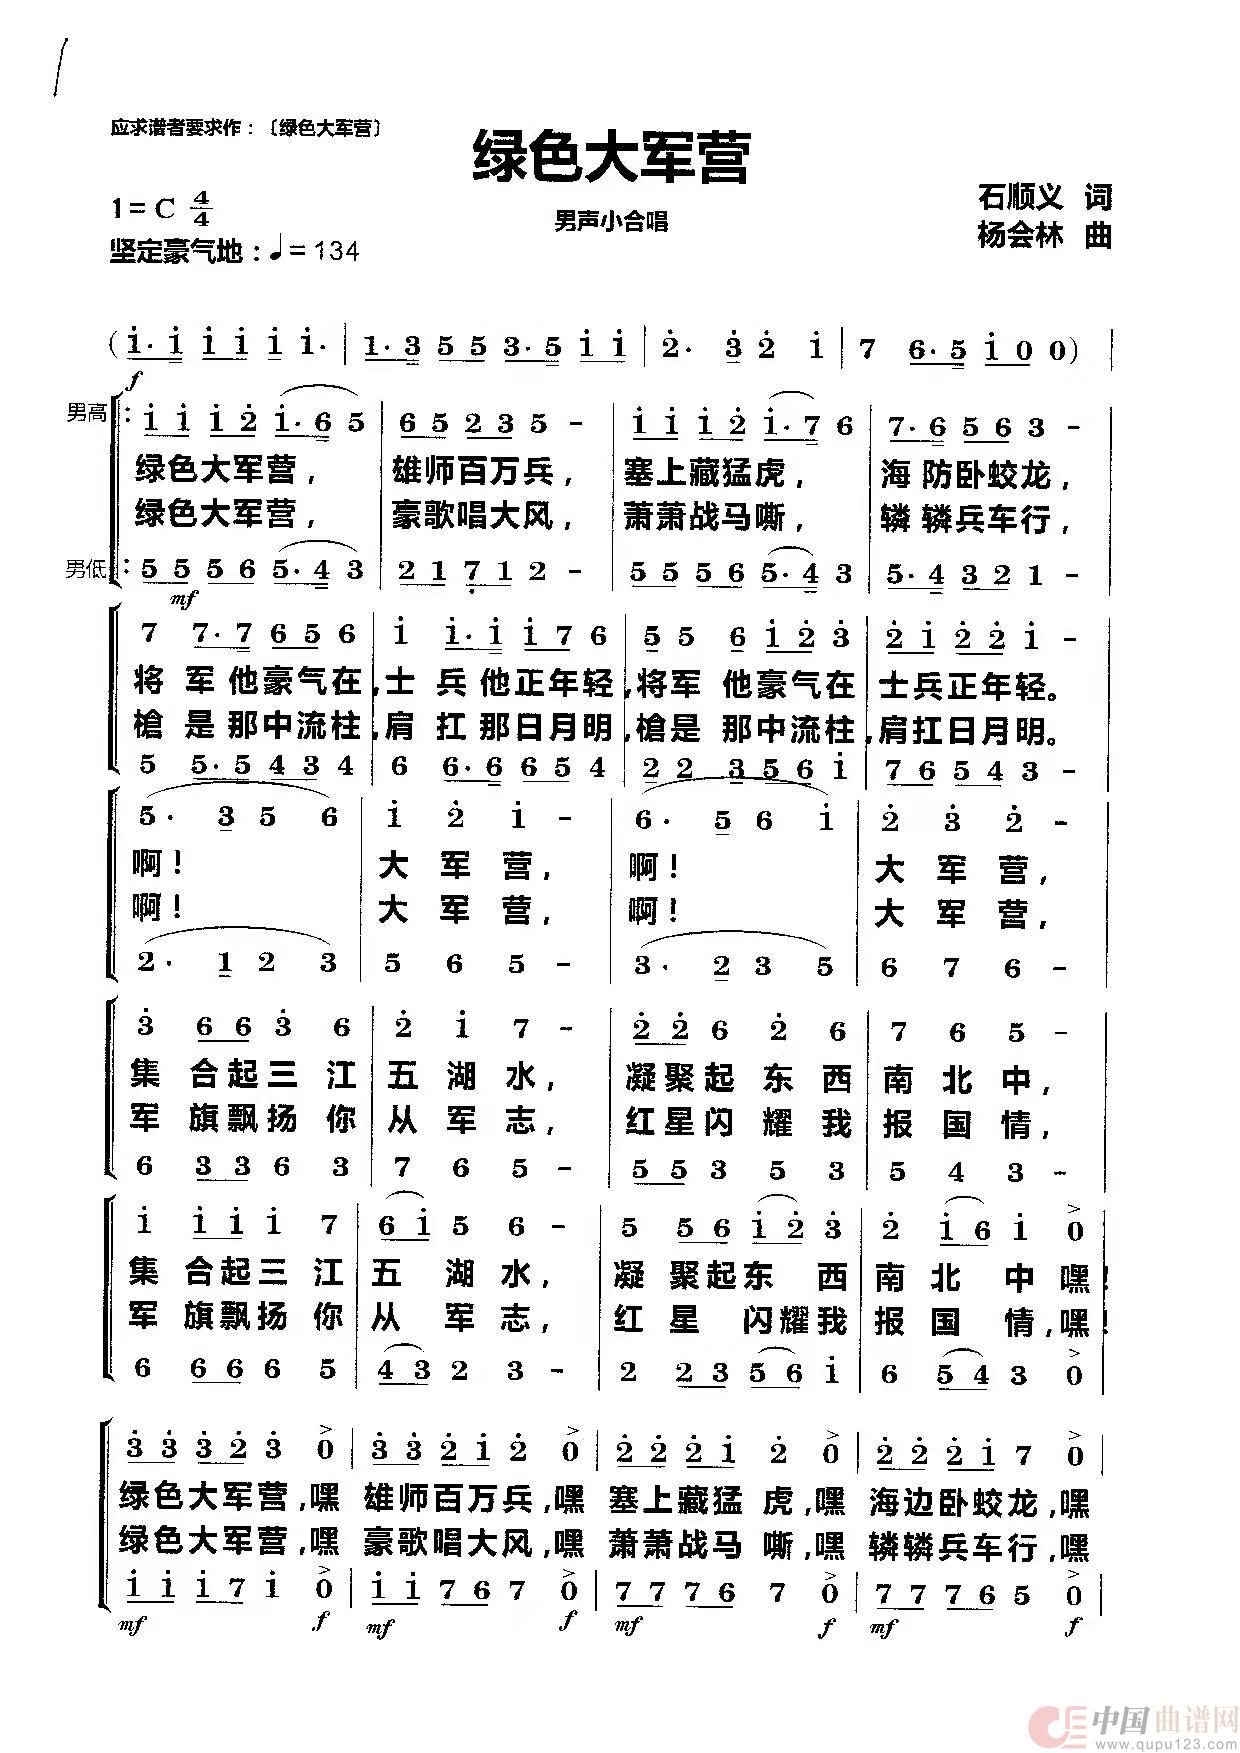 应求谱者要求作：〔绿色大军营〕
绿色大军营
1=C 4/4
男声小合唱
石顺义 词
杨会林 曲
坚定豪气地：♩=134
(i· i i i i i i· | 1· 3 5 5 3· 5 i i | 2· 3 2 i | 7 6· 5 i 0 0) |
f
男高：i i i 2 i· 6 5 | 6 5 2 3 5 - | i i i 2 i· 7 6 | 7· 6 5 6 3 - |
绿色大军营， 雄师百万兵， 塞上藏猛虎， 海防卧蛟龙，
绿色大军营， 豪歌唱大风， 萧萧战马嘶， 辚辚兵车行，
男低：5 5 5 6 5· 4 3 | 2 1 7 1 2 - | 5 5 5 6 5· 4 3 | 5· 4 3 2 1 - |
mf
7 7· 7 6 5 6 | i i· i i 7 6 | 5 5 6 i 2 3 | 2 i 2 2 i - |
将军他豪气在，士兵他正年轻，将军他豪气在 士兵正年轻。
槍是那中流柱，肩扛那日月明，槍是那中流柱，肩扛日月明。
5 5· 5 4 3 4 | 6 6· 6 6 5 4 | 2 2 3 5 6 i | 7 6 5 4 3 - |
5· 3 5 6 | i 2 i - | 6· 5 6 i | 2 3 2 - |
啊！ 大军营， 啊！ 大军营，
啊！ 大军营， 啊！ 大军营，
2· 1 2 3 | 5 6 5 - | 3· 2 3 5 | 6 7 6 - |
3 6 6 3 6 | 2 i 7 - | 2 2 6 2 6 | 7 6 5 - |
集合起三江五湖水， 凝聚起东西南北中，
军旗飘扬你从军志， 红星闪耀我报国情，
6 3 3 6 3 | 7 6 5 - | 5 5 3 5 3 | 5 4 3 - |
i i i i 7 | 6 i 5 6 - | 5 5 6 i 2 3 | 2 i 6 i 0 |
集合起三江五湖水， 凝聚起东西南北中嘿！
军旗飘扬你从军志， 红星闪耀我报国情，嘿！
6 6 6 6 5 | 4 3 2 3 - | 2 2 3 5 6 i | 6 5 4 3 0 |
3 3 3 2 3 0 | 3 3 2 i 2 0 | 2 2 2 i 2 0 | 2 2 2 i 7 0 |
绿色大军营，嘿 雄师百万兵，嘿 塞上藏猛虎，嘿 海边卧蛟龙，嘿
绿色大军营，嘿 豪歌唱大风，嘿 萧萧战马嘶，嘿 辚辚兵车行，嘿
i i i 7 i 0 | i i 7 6 7 0 | 7 7 7 6 7 0 | 7 7 7 6 5 0 |
mf f mf f mf f mf f
中国曲谱网
www.qupu123.com